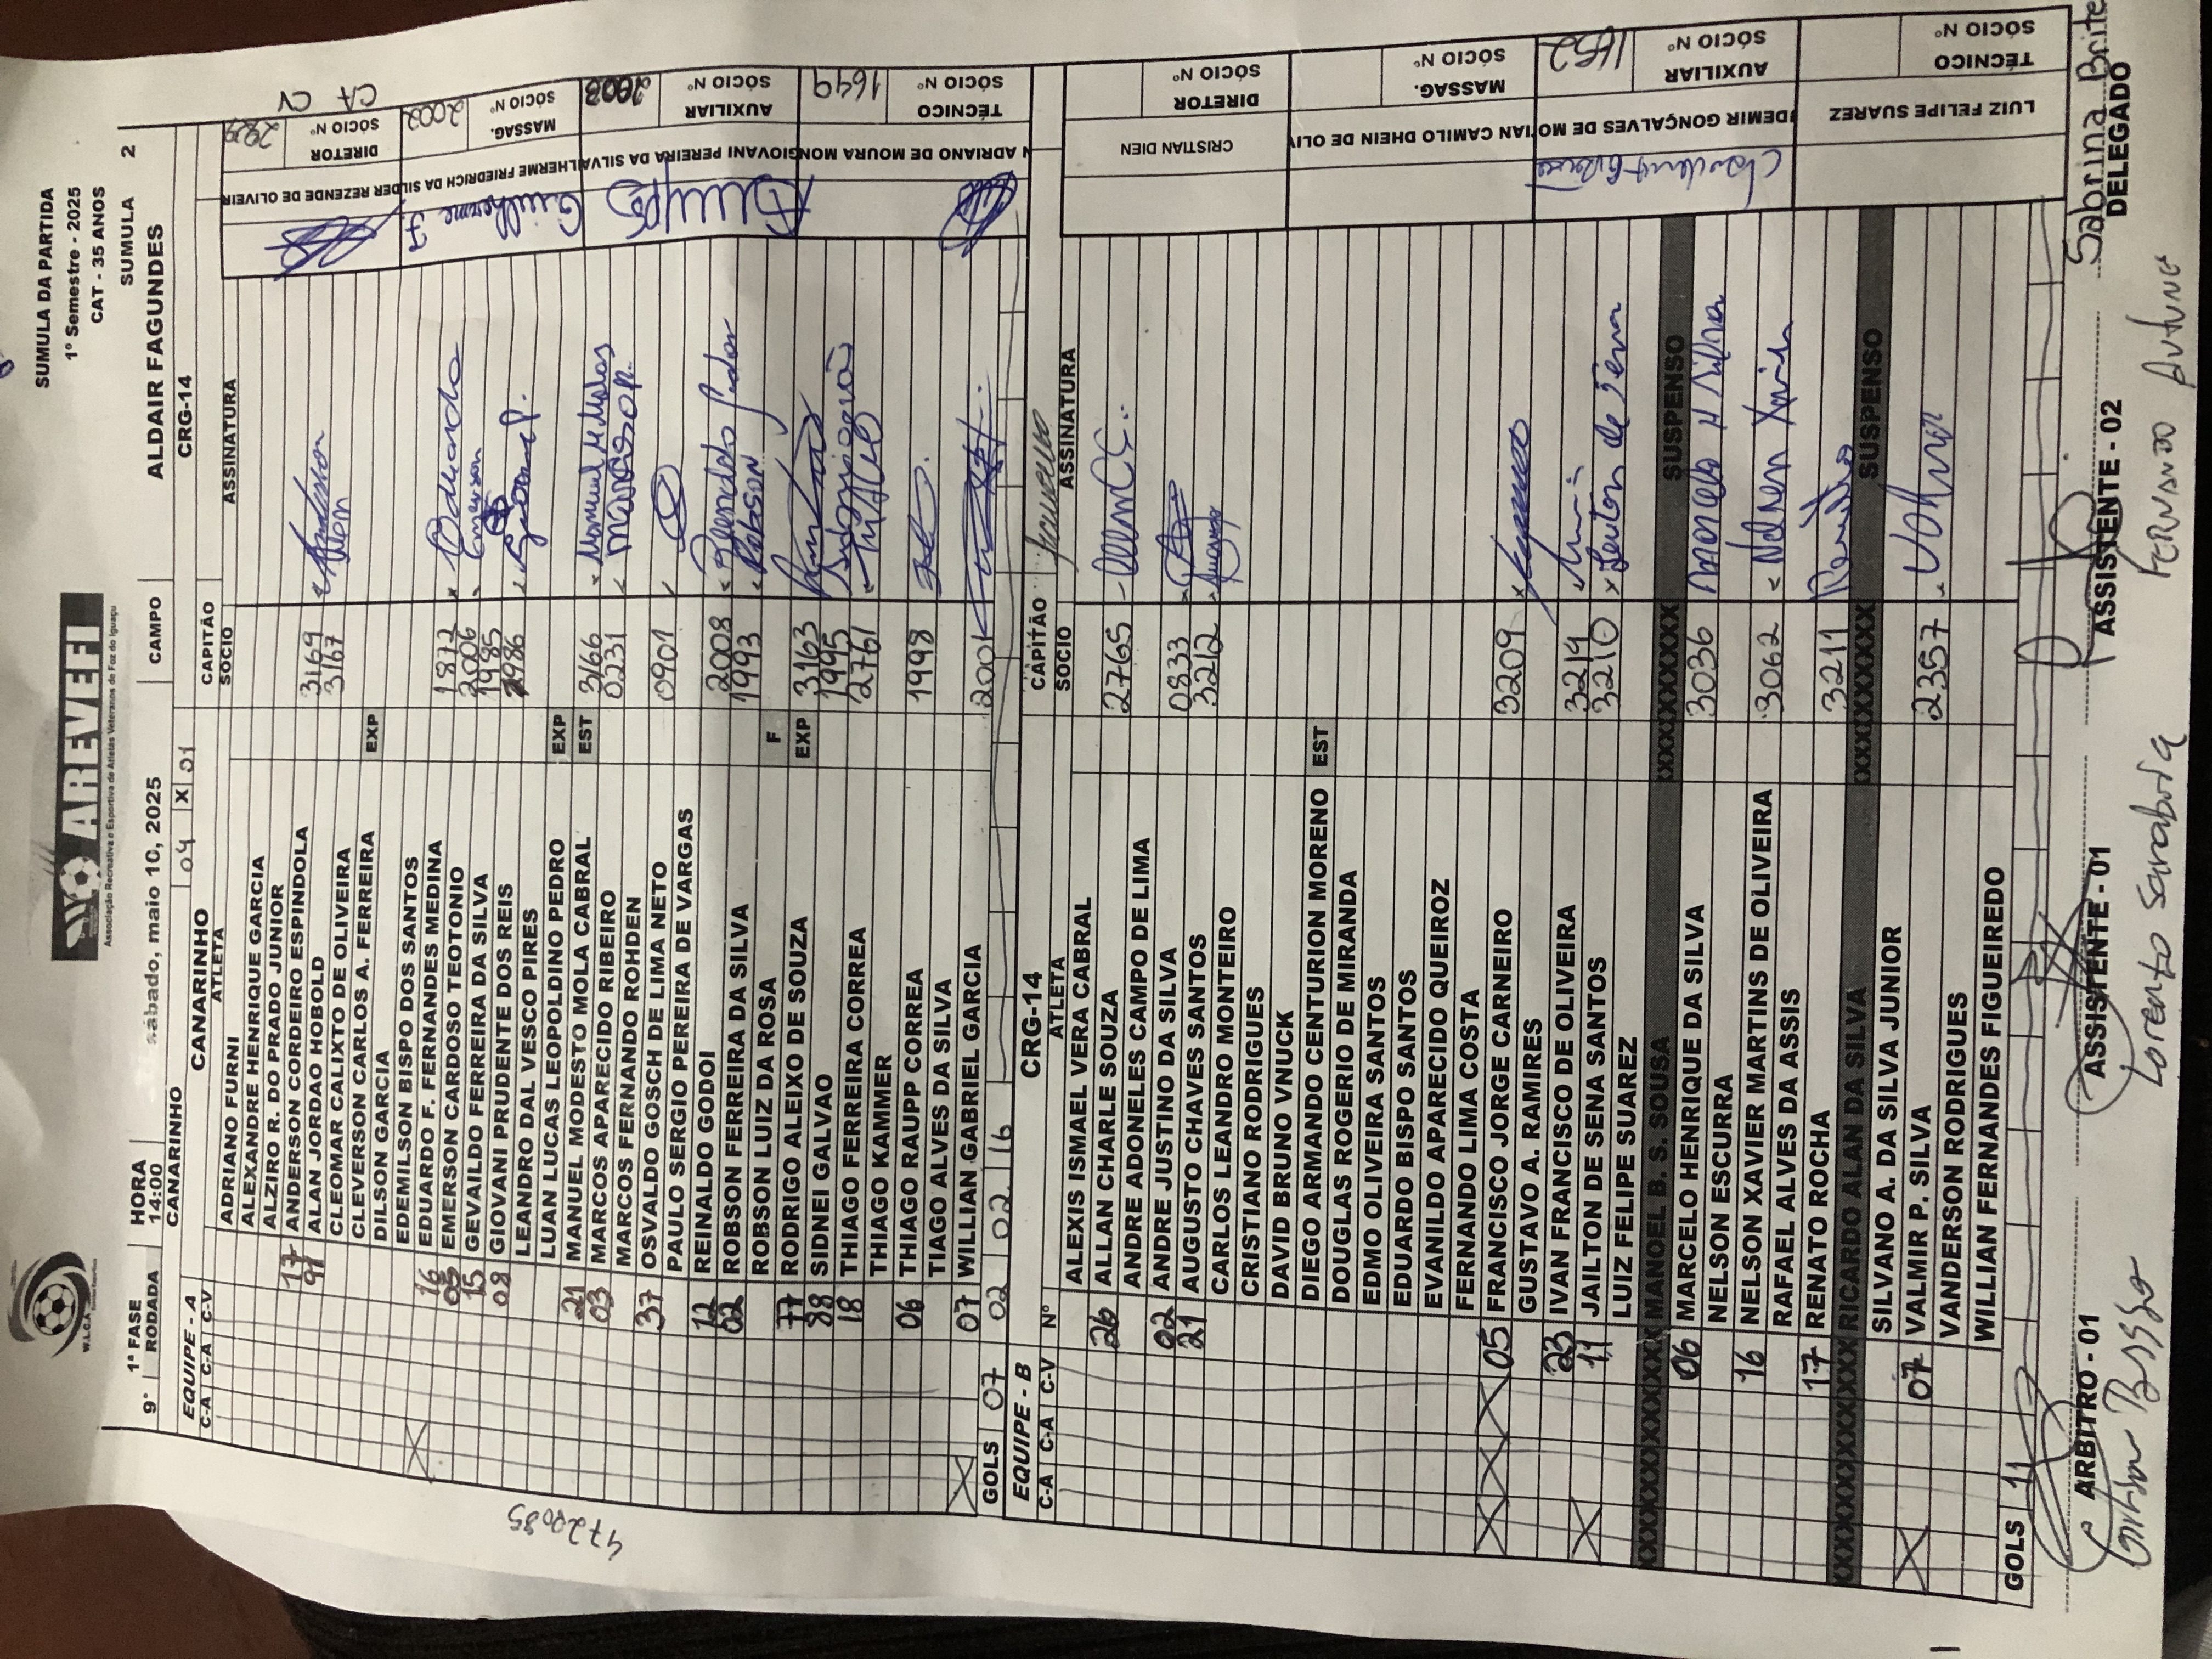 SUMULA DA PARTIDA
1° Semestre - 2025
CAT - 35 ANOS
W.L.C.A.
AREVEFI
Associação Recreativa e Esportiva de Atletas Veteranos de Foz do Iguaçu
1ª FASE HORA CAMPO SUMULA 2
9° RODADA 14:00 sábado, maio 10, 2025 ALDAIR FAGUNDES
CANARINHO 04 X 01 CRG-14
EQUIPE - A CANARINHO CAPITÃO
C-A C-A C-V ATLETA SOCIO ASSINATURA
ADRIANO FURNI
ALEXANDRE HENRIQUE GARCIA
ALZIRO R. DO PRADO JUNIOR
17 ANDERSON CORDEIRO ESPINDOLA 3169
97 ALAN JORDAO HOBOLD 3167 Alan
CLEOMAR CALIXTO DE OLIVEIRA
CLEVERSON CARLOS A. FERREIRA EXP
DILSON GARCIA
EDEMILSON BISPO DOS SANTOS
16 EDUARDO F. FERNANDES MEDINA 1872 Eduardo
05 EMERSON CARDOSO TEOTONIO 2006 Emerson
15 GEVAILDO FERREIRA DA SILVA 1985
08 GIOVANI PRUDENTE DOS REIS 2986 Giovani P.
LEANDRO DAL VESCO PIRES
LUAN LUCAS LEOPOLDINO PEDRO EXP
21 MANUEL MODESTO MOLA CABRAL EST 3166 Manuel M Molas
03 MARCOS APARECIDO RIBEIRO 0231 Marcos A R.
MARCOS FERNANDO ROHDEN
37 OSVALDO GOSCH DE LIMA NETO 0901
PAULO SERGIO PEREIRA DE VARGAS
12 REINALDO GODOI 2008 Reinaldo Godoi
02 ROBSON FERREIRA DA SILVA 1993 Robson
ROBSON LUIZ DA ROSA F
77 RODRIGO ALEIXO DE SOUZA EXP 3163
88 SIDNEI GALVAO 1995 Sidnei Galvão
18 THIAGO FERREIRA CORREA 2761 THIAGO
THIAGO KAMMER
06 THIAGO RAUPP CORREA 1998
TIAGO ALVES DA SILVA
07 WILLIAN GABRIEL GARCIA 2001
GOLS 07 02 02 16
DIRETOR SÓCIO Nº
ELDER REZENDE DE OLIVEIR
MASSAG. SÓCIO Nº 2002
GUILHERME FRIEDRICH DA SIL Guilherme F.
AUXILIAR SÓCIO Nº 2003
GIOVANI PEREIRA DA SILVA
TÉCNICO SÓCIO Nº 1649
N ADRIANO DE MOURA MON
CA CV
4720085
EQUIPE - B CRG-14 CAPITÃO
C-A C-A C-V Nº ATLETA SOCIO ASSINATURA
ALEXIS ISMAEL VERA CABRAL
20 ALLAN CHARLE SOUZA 2765
ANDRE ADONELES CAMPO DE LIMA
02 ANDRE JUSTINO DA SILVA 0833
21 AUGUSTO CHAVES SANTOS 3212
CARLOS LEANDRO MONTEIRO
CRISTIANO RODRIGUES
DAVID BRUNO VNUCK
DIEGO ARMANDO CENTURION MORENO EST
DOUGLAS ROGERIO DE MIRANDA
EDMO OLIVEIRA SANTOS
EDUARDO BISPO SANTOS
EVANILDO APARECIDO QUEIROZ
FERNANDO LIMA COSTA
05 FRANCISCO JORGE CARNEIRO 3209
GUSTAVO A. RAMIRES
23 IVAN FRANCISCO DE OLIVEIRA 3214
11 JAILTON DE SENA SANTOS 3210 Jailton de Sena
LUIZ FELIPE SUAREZ
MANOEL B. S. SOUSA SUSPENSO
06 MARCELO HENRIQUE DA SILVA 3036 Marcelo H Silva
NELSON ESCURRA
16 NELSON XAVIER MARTINS DE OLIVEIRA 3062 Nelson Xavier
RAFAEL ALVES DA ASSIS
17 RENATO ROCHA 3211 Renato
RICARDO ALAN DA SILVA SUSPENSO
SILVANO A. DA SILVA JUNIOR
07 VALMIR P. SILVA 2357 Valmir
VANDERSON RODRIGUES
WILLIAN FERNANDES FIGUEIREDO
GOLS 11
DIRETOR SÓCIO Nº
CRISTIAN DIEN
MASSAG. SÓCIO Nº
IAN CAMILO DHEIN DE OLIV
AUXILIAR SÓCIO Nº 1152
DEMIR GONÇALVES DE MO
TÉCNICO SÓCIO Nº
LUIZ FELIPE SUAREZ
ARBITRO - 01 ASSISTENTE - 01 ASSISTENTE - 02 DELEGADO
Lorento Sanabria FERNANDO ANTUNE Sabrina Brite